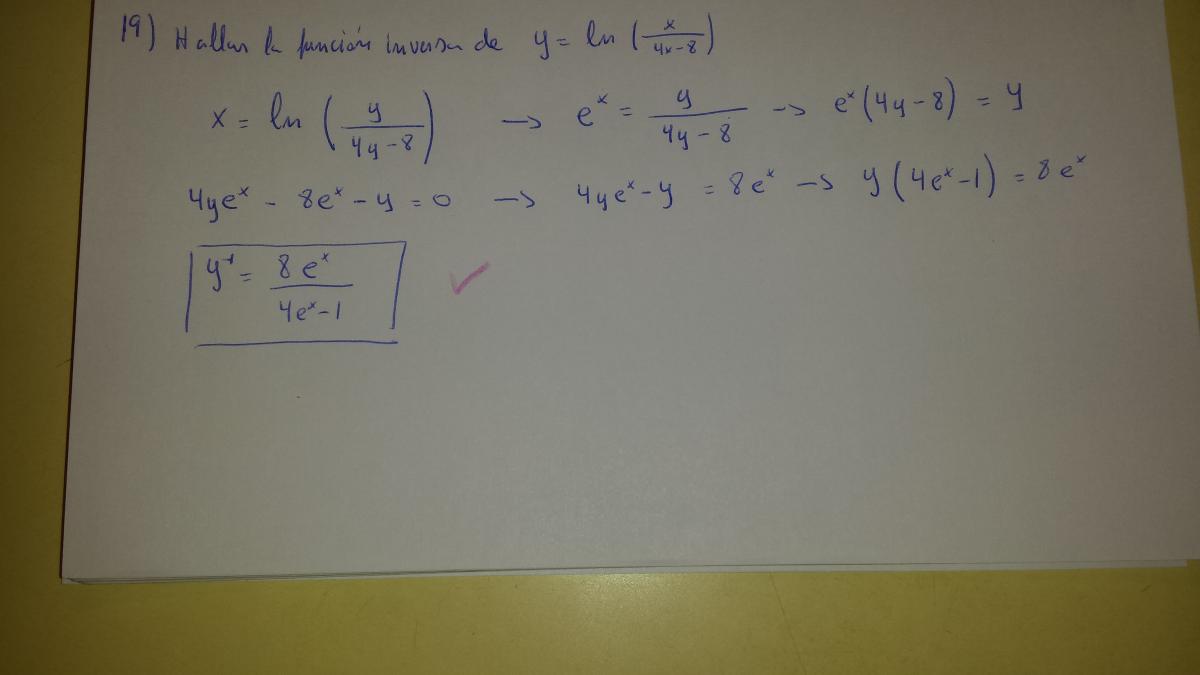 19) Hallar la función inversa de y = ln (x/(4x-8))
x = ln (y/(4y-8)) → eˣ = y/(4y-8) → eˣ(4y-8) = y
4yeˣ - 8eˣ - y = 0 → 4yeˣ - y = 8eˣ → y(4eˣ-1) = 8eˣ
y⁻¹ = 8eˣ/(4eˣ-1) ✓